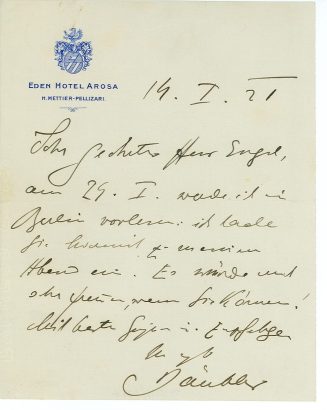 EDEN HOTEL AROSA
H. METTIER-PELLIZARI.
14. I. 21
Sehr geehrter Herr Engel,
am 29. I. werde ich in
Berlin vorlesen: ich lade
Sie hiermit zu meinem
Abend ein. Es würde mich
sehr freuen, wenn Sie kämen!
Mit besten Grüßen u. Empfehlungen
Däubler